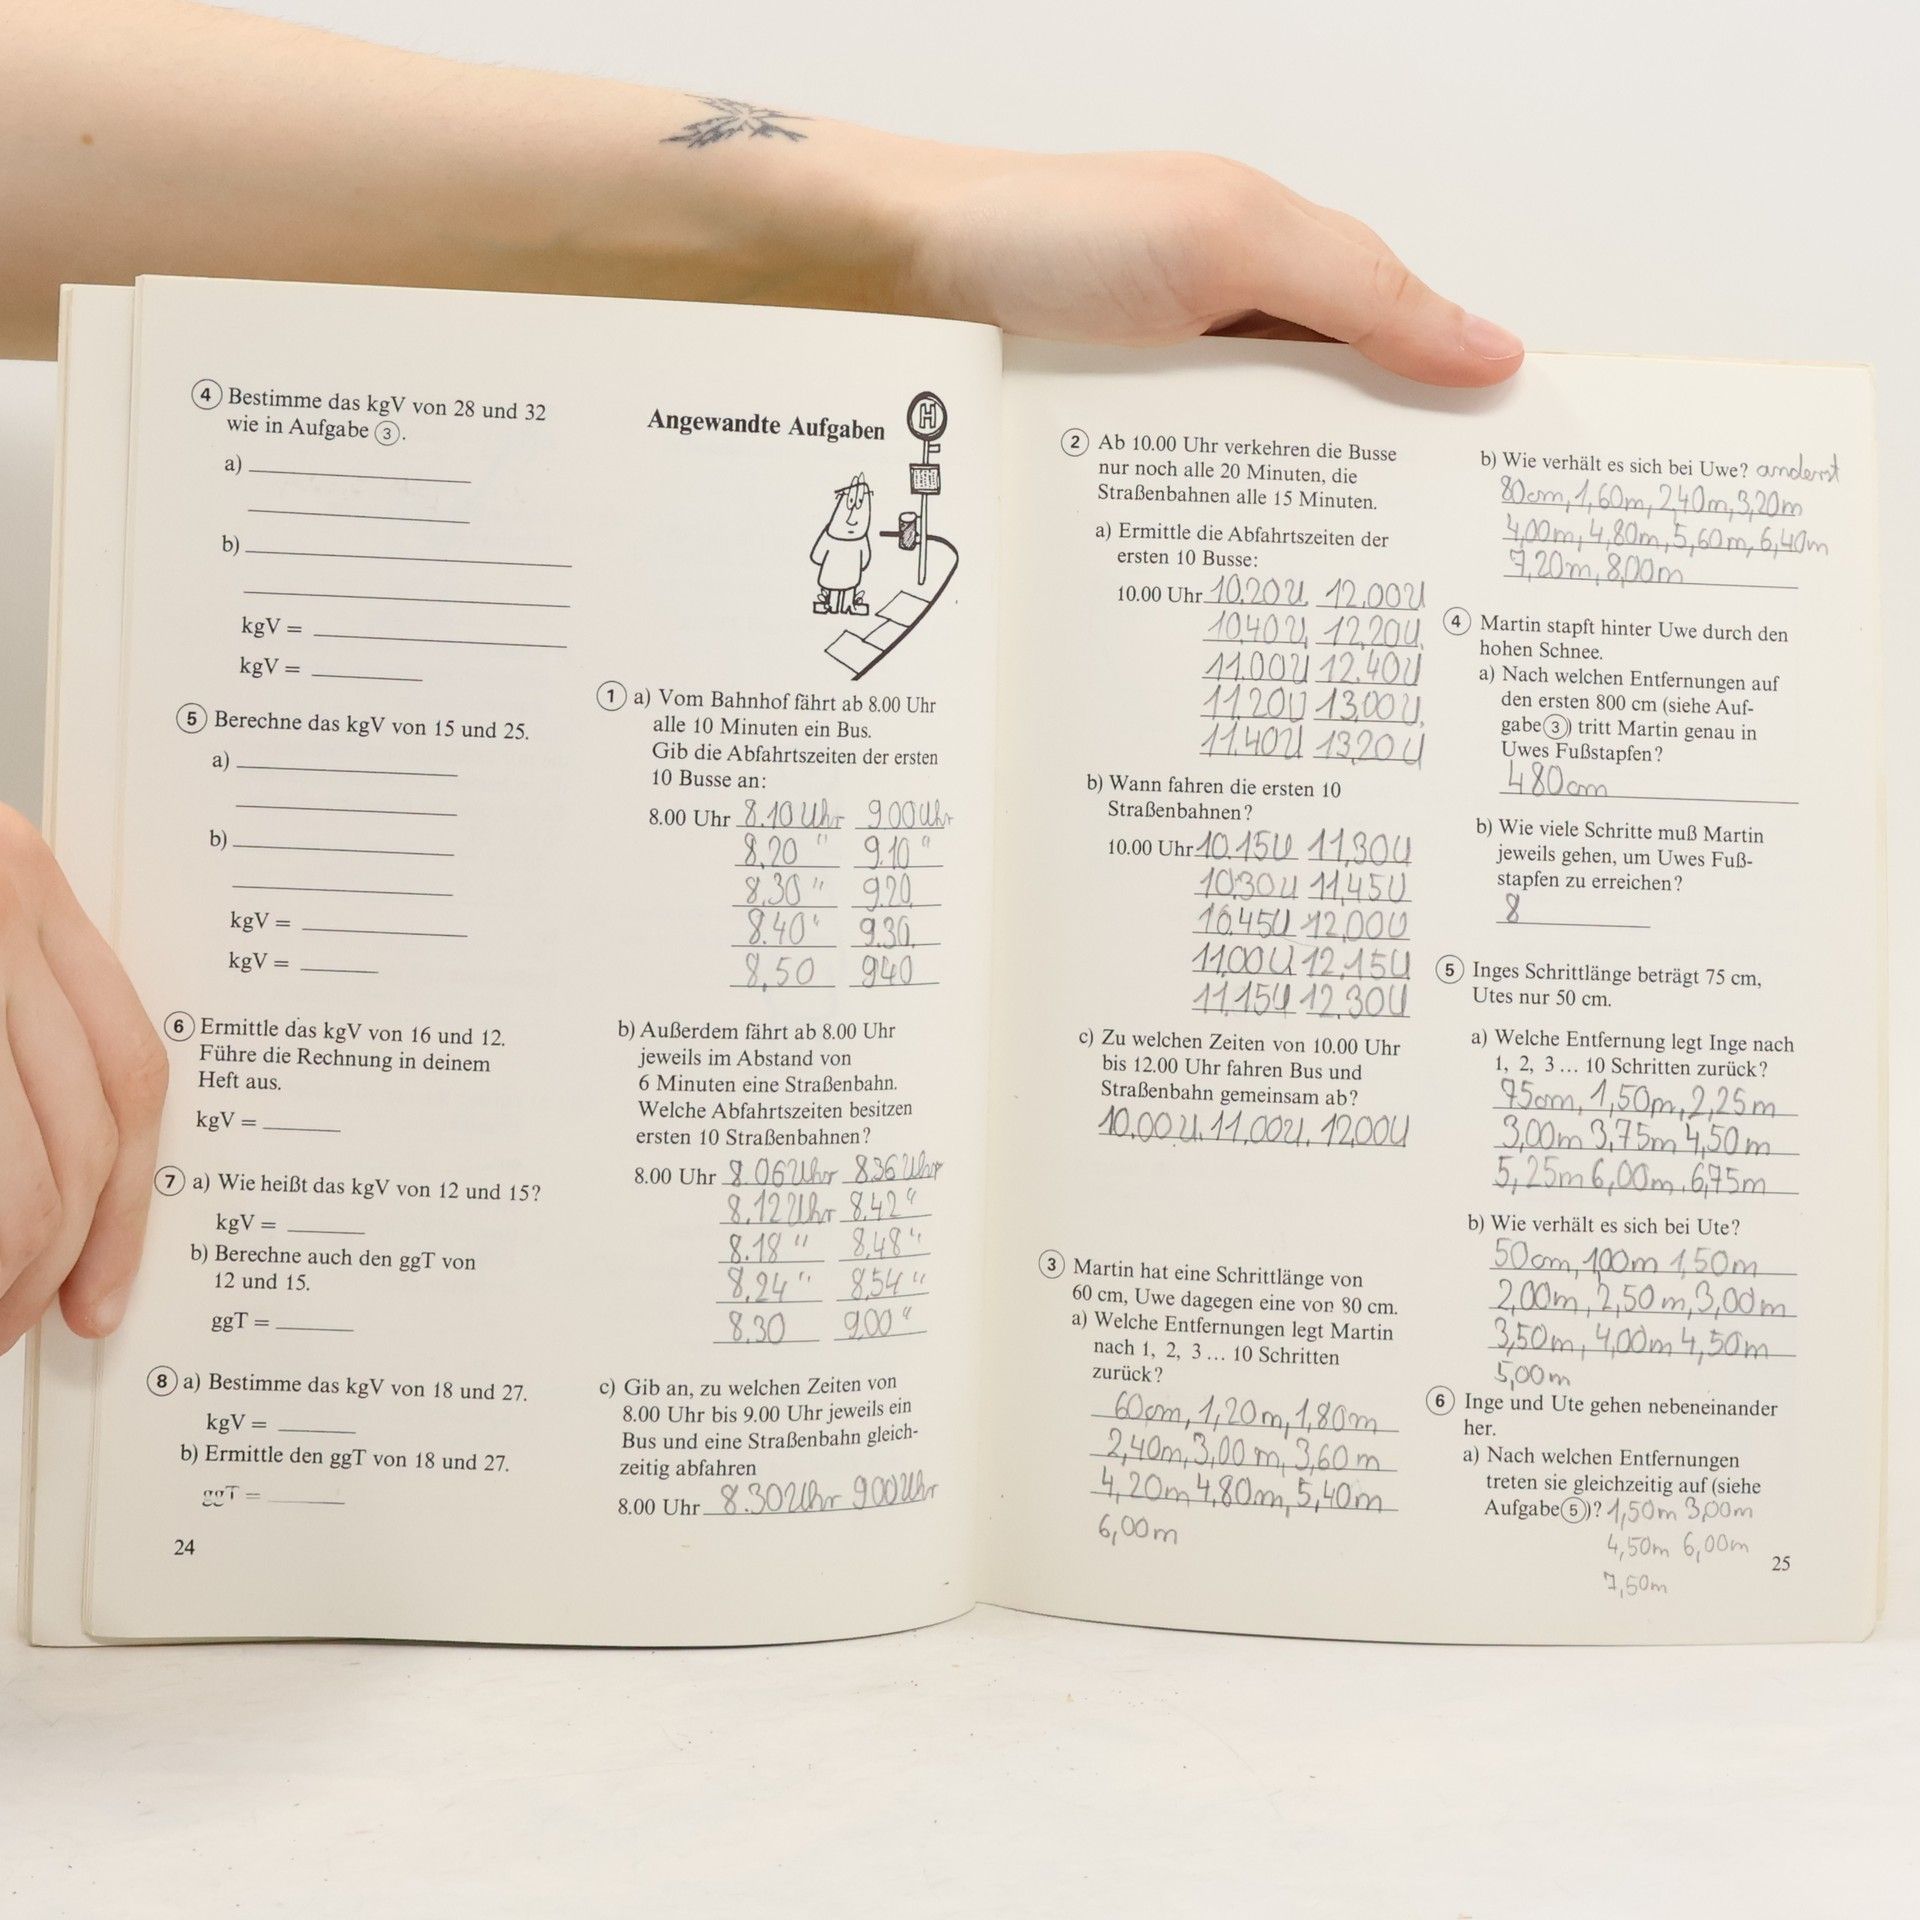 4 Bestimme das kgV von 28 und 32
wie in Aufgabe 3.
a)
b)
kgV =
kgV =
5 Berechne das kgV von 15 und 25.
a)
b)
kgV =
kgV =
6 Ermittle das kgV von 16 und 12.
Führe die Rechnung in deinem
Heft aus.
kgV =
7 a) Wie heißt das kgV von 12 und 15?
kgV =
b) Berechne auch den ggT von
12 und 15.
ggT =
8 a) Bestimme das kgV von 18 und 27.
kgV =
b) Ermittle den ggT von 18 und 27.
ggT =
24
Angewandte Aufgaben
H
1 a) Vom Bahnhof fährt ab 8.00 Uhr
alle 10 Minuten ein Bus.
Gib die Abfahrtszeiten der ersten
10 Busse an:
8.00 Uhr 8.10 Uhr 900 Uhr
8.20 " 9.10 "
8.30 " 9.20
8.40 " 9.30
8.50 940
b) Außerdem fährt ab 8.00 Uhr
jeweils im Abstand von
6 Minuten eine Straßenbahn.
Welche Abfahrtszeiten besitzen
ersten 10 Straßenbahnen?
8.00 Uhr 8.06 Uhr 8.36 Uhr
8.12 Uhr 8.42 "
8.18 " 8.48 "
8.24 " 8.54 "
8.30 9.00 "
c) Gib an, zu welchen Zeiten von
8.00 Uhr bis 9.00 Uhr jeweils ein
Bus und eine Straßenbahn gleich-
zeitig abfahren
8.00 Uhr 8.30 Uhr 900 Uhr
2 Ab 10.00 Uhr verkehren die Busse
nur noch alle 20 Minuten, die
Straßenbahnen alle 15 Minuten.
a) Ermittle die Abfahrtszeiten der
ersten 10 Busse:
10.00 Uhr 10.20 U. 12.00 U
10.40 U. 12.20 U.
11.00 U 12.40 U
11.20 U 13.00 U.
11.40 U 13.20 U
b) Wann fahren die ersten 10
Straßenbahnen?
10.00 Uhr 10.15 U 11.30 U
10.30 U 11.45 U
10.45 U 12.00 U
11.00 U 12.15 U
11.15 U 12.30 U
c) Zu welchen Zeiten von 10.00 Uhr
bis 12.00 Uhr fahren Bus und
Straßenbahn gemeinsam ab?
10.00 U. 11.00 U. 12.00 U
3 Martin hat eine Schrittlänge von
60 cm, Uwe dagegen eine von 80 cm.
a) Welche Entfernungen legt Martin
nach 1, 2, 3 ... 10 Schritten
zurück?
60cm, 1,20m, 1,80m
2,40m, 3,00m, 3,60m
4,20m 4,80m, 5,40m
6,00m
b) Wie verhält es sich bei Uwe? anderst
80cm, 1,60m, 2,40m, 3,20m
4,00m, 4,80m, 5,60m, 6,40m
7,20m, 8,00m
4 Martin stapft hinter Uwe durch den
hohen Schnee.
a) Nach welchen Entfernungen auf
den ersten 800 cm (siehe Auf-
gabe 3) tritt Martin genau in
Uwes Fußstapfen?
480cm
b) Wie viele Schritte muß Martin
jeweils gehen, um Uwes Fuß-
stapfen zu erreichen?
8
5 Inges Schrittlänge beträgt 75 cm,
Utes nur 50 cm.
a) Welche Entfernung legt Inge nach
1, 2, 3 ... 10 Schritten zurück?
75cm, 1,50m, 2,25m
3,00m 3,75m 4,50m
5,25m 6,00m, 6,75m
b) Wie verhält es sich bei Ute?
50cm, 1,00m 1,50m
2,00m, 2,50m, 3,00m
3,50m, 4,00m 4,50m
5,00m
6 Inge und Ute gehen nebeneinander
her.
a) Nach welchen Entfernungen
treten sie gleichzeitig auf (siehe
Aufgabe 5)? 1,50m 3,00m
4,50m 6,00m
7,50m
25